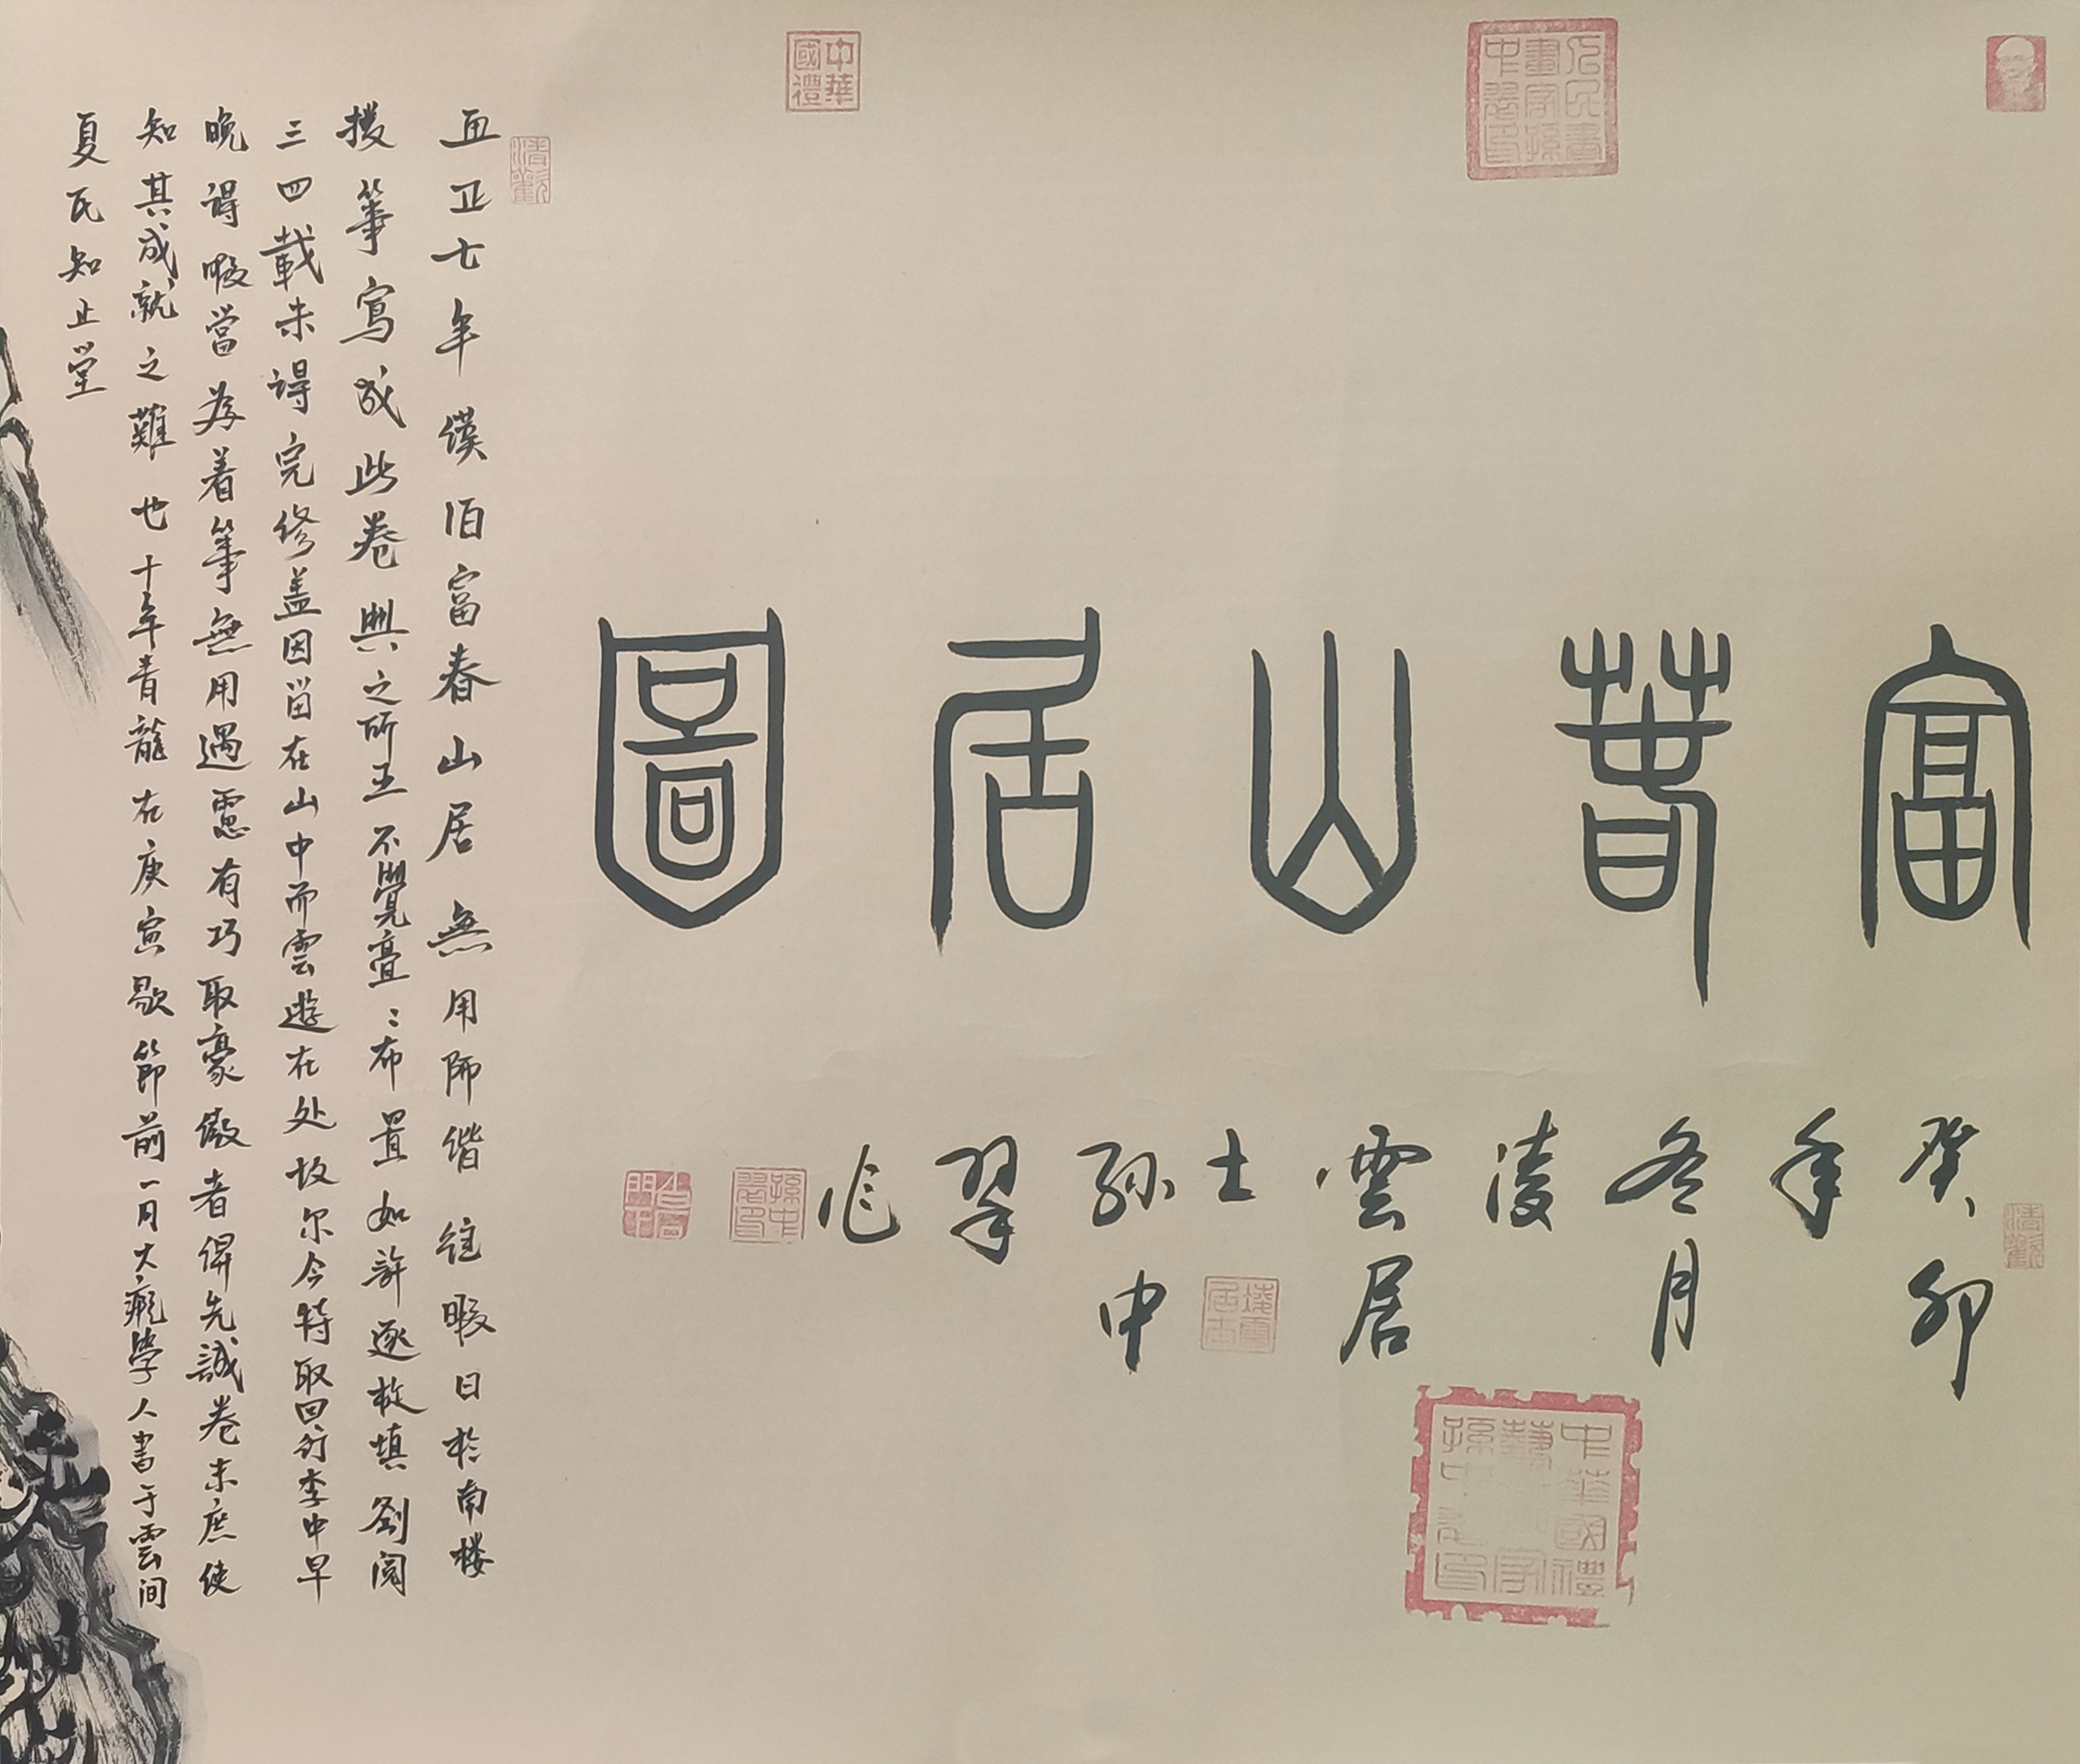 富春山居圖
癸卯
年
冬月
凌
雲居
士
孫中
翠
作
至正七年僕归富春山居無用師偕往暇日於南楼
援筆寫成此卷興之所至不覺亹〻布置如許逐旋填劄阅
三四載未得完俻盖因留在山中而雲遊在处故尔今特取回行李中早
晚得暇當为着筆無用過慮有巧取豪敚者俾先識卷末庶使
知其成就之難也十年青龍在庚寅歜節前一日大癡學人書于雲间
夏氏知止堂
中華國禮
清觀